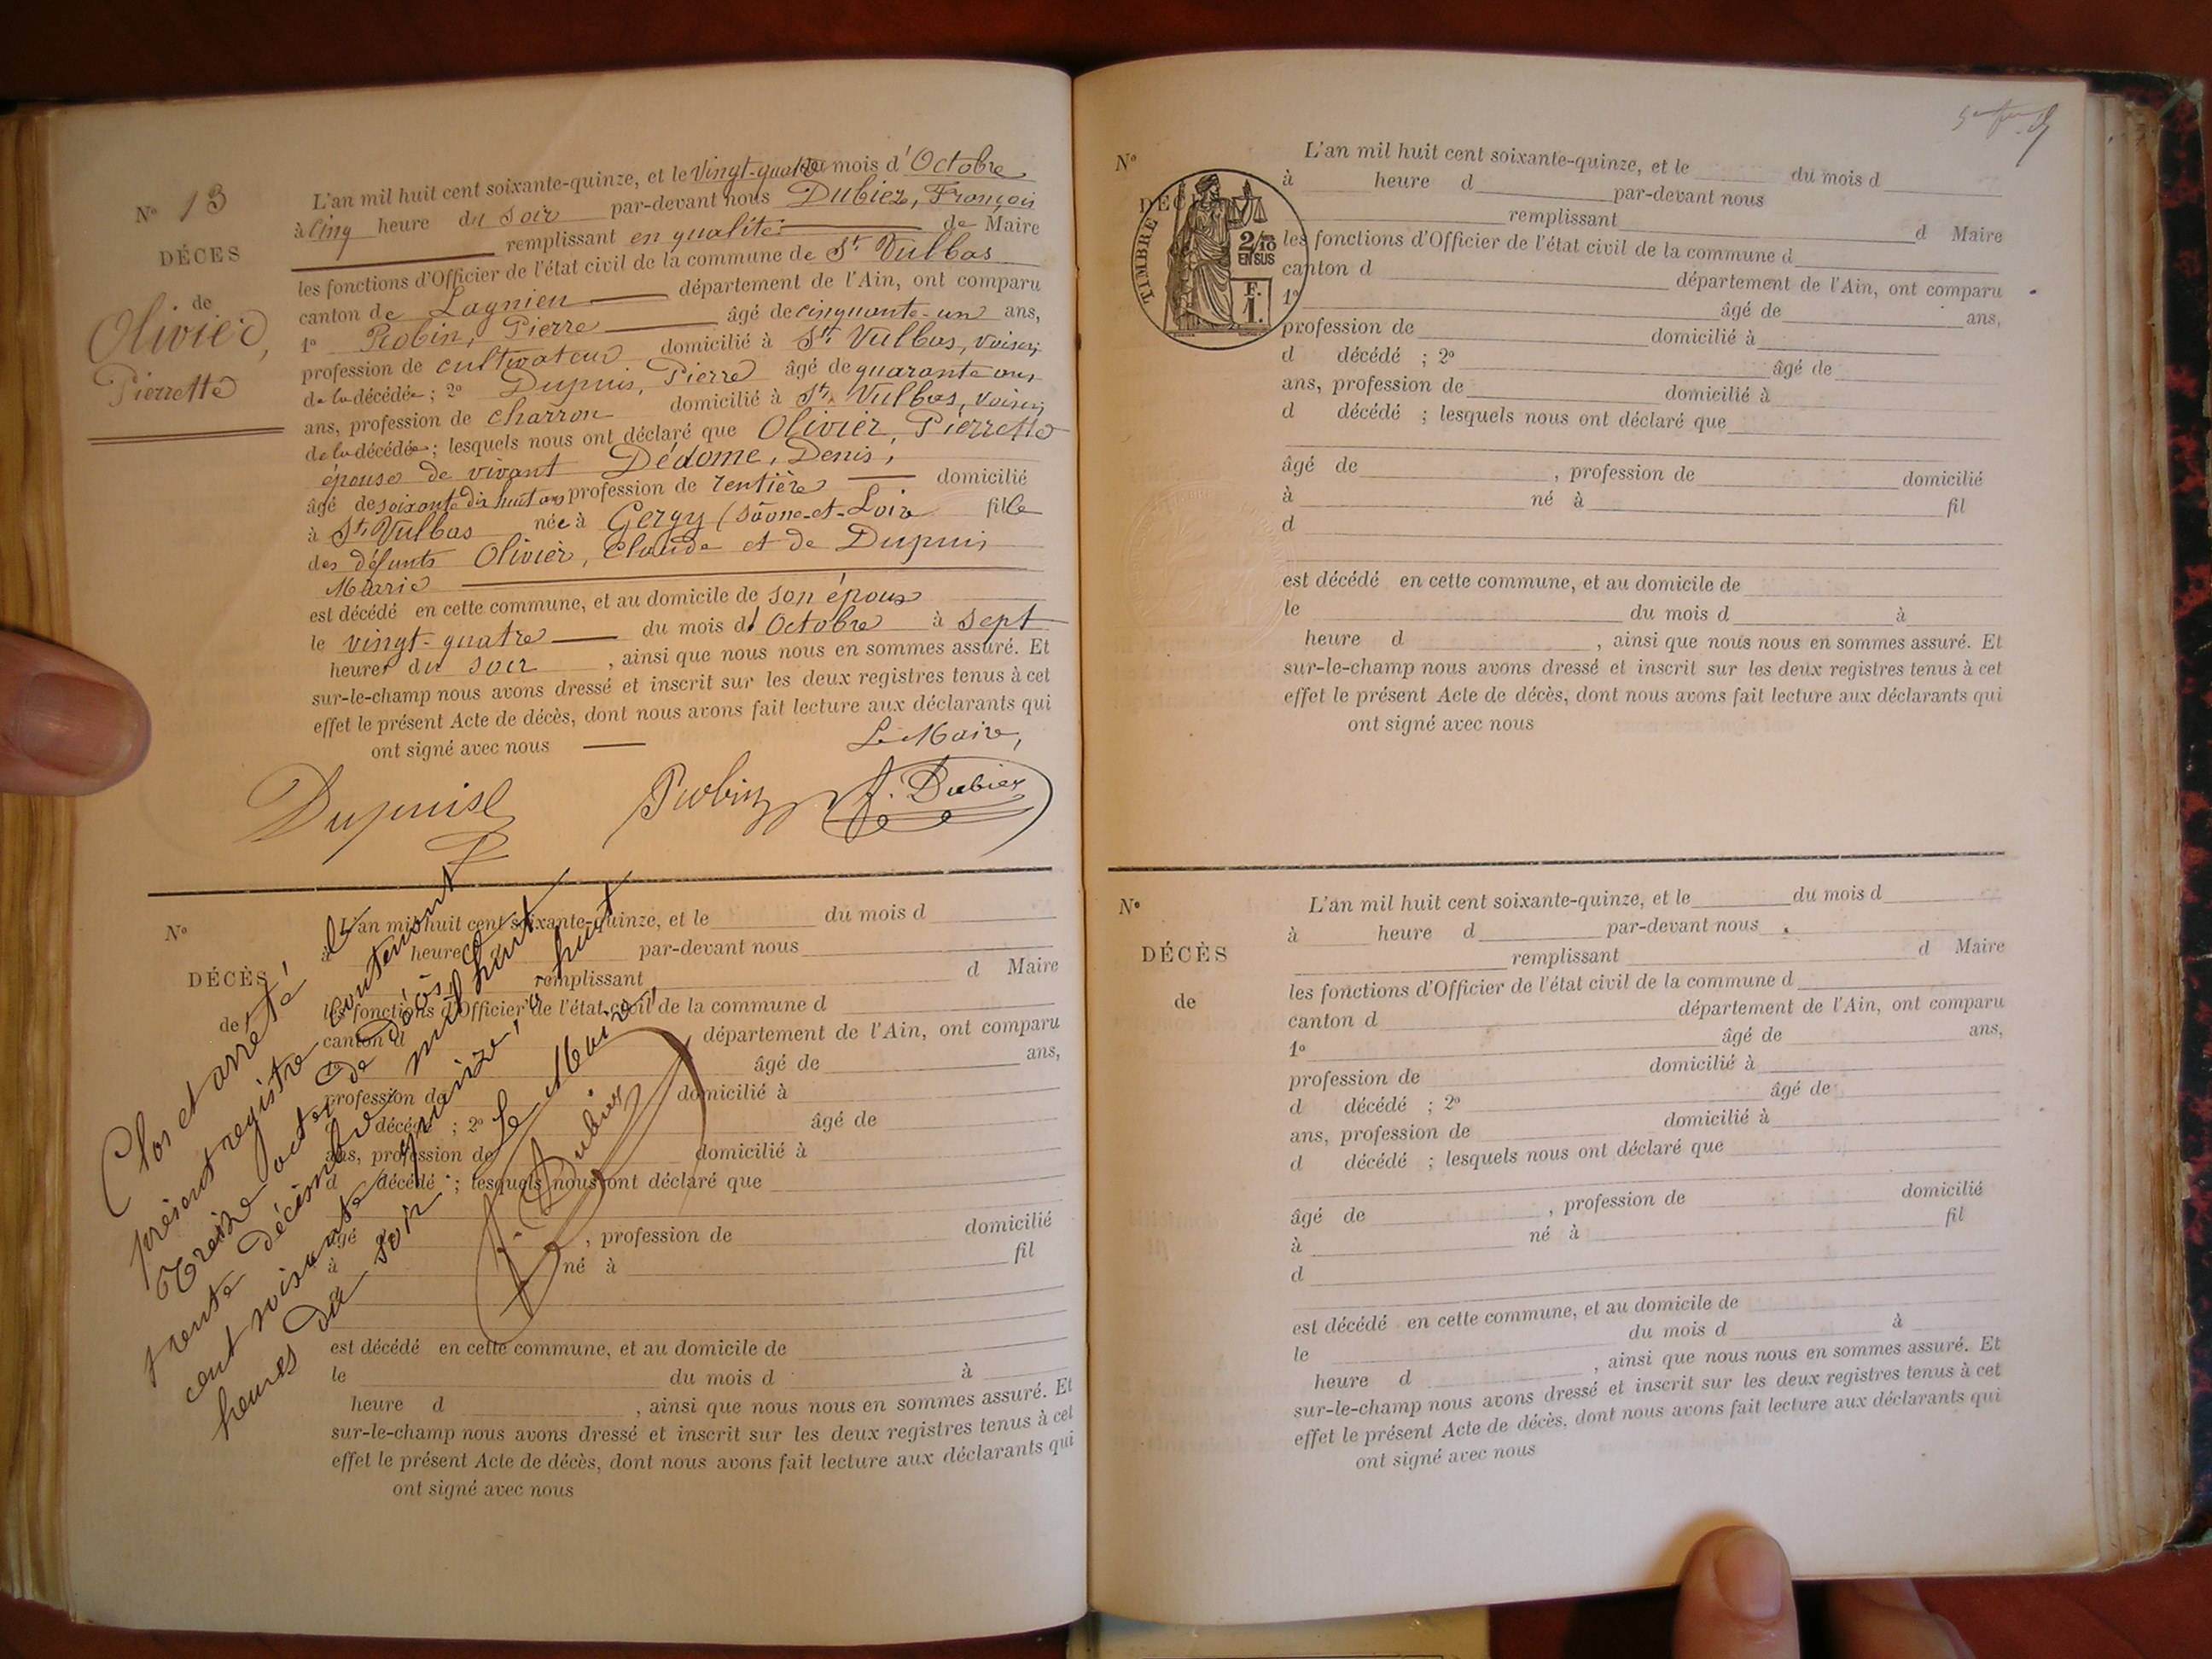 N° 13
DÉCES
de
Olivier,
Pierrette
L'an mil huit cent soixante-quinze, et le Vingt-quatre du mois d'Octobre
à Cinq heure du soir par-devant nous Dubiez, François
remplissant en qualité de Maire
les fonctions d'Officier de l'état civil de la commune de St Vulbas
canton de Lagnieu département de l'Ain, ont comparu
1° Robin, Pierre âgé de cinquante-un ans,
profession de cultivateur domicilié à St Vulbas, voisin
de la décédée ; 2° Dupuis, Pierre âgé de quarante ans
ans, profession de charron domicilié à St Vulbas, voisin
de la décédée ; lesquels nous ont déclaré que Olivier, Pierrette
épouse de vivant Dédome, Denis,
âgé de soixante dix huit ans profession de rentière domicilié
à St Vulbas née à Gergy (Sâone-et-Loire fille
des défunts Olivier, Claude et de Dupuis
Marie
est décédé en cette commune, et au domicile de son époux
le vingt-quatre du mois d'Octobre à sept
heures du soir , ainsi que nous nous en sommes assuré. Et
sur-le-champ nous avons dressé et inscrit sur les deux registres tenus à cet
effet le présent Acte de décès, dont nous avons fait lecture aux déclarants qui
ont signé avec nous Le Maire,
Dupuis Robin f. Dubiez
N°
DÉCÈS
de
L'an mil huit cent soixante-quinze, et le du mois d
à heure d par-devant nous
remplissant d Maire
les fonctions d'Officier de l'état civil de la commune d
canton d département de l'Ain, ont comparu
âgé de ans,
profession de domicilié à
d décédé ; 2° âgé de
ans, profession de domicilié à
d décédé ; lesquels nous ont déclaré que
âgé de , profession de domicilié
à né à fil
d
est décédé en cette commune, et au domicile de
le du mois d à
heure d , ainsi que nous nous en sommes assuré. Et
sur-le-champ nous avons dressé et inscrit sur les deux registres tenus à cet
effet le présent Acte de décès, dont nous avons fait lecture aux déclarants qui
ont signé avec nous
Clos et arreté le
présent registre contenant
treize actes de décès, le
trente décembre mil huit
cent soixante quinze, à huit
heures du soir. Le Maire,
f. Dubiez
N°
DÉC
TIMBRE
2/10
EN SUS
F.
1.
L'an mil huit cent soixante-quinze, et le du mois d
à heure d par-devant nous
remplissant d Maire
les fonctions d'Officier de l'état civil de la commune d
canton d département de l'Ain, ont comparu
1° âgé de ans,
profession de domicilié à
d décédé ; 2° âgé de
ans, profession de domicilié à
d décédé ; lesquels nous ont déclaré que
âgé de , profession de domicilié
à né à fil
d
est décédé en cette commune, et au domicile de
le du mois d à
heure d , ainsi que nous nous en sommes assuré. Et
sur-le-champ nous avons dressé et inscrit sur les deux registres tenus à cet
effet le présent Acte de décès, dont nous avons fait lecture aux déclarants qui
ont signé avec nous
N°
DÉCÈS
de
L'an mil huit cent soixante-quinze, et le du mois d
à heure d par-devant nous
remplissant d Maire
les fonctions d'Officier de l'état civil de la commune d
canton d département de l'Ain, ont comparu
1° âgé de ans,
profession de domicilié à
d décédé ; 2° âgé de
ans, profession de domicilié à
d décédé ; lesquels nous ont déclaré que
âgé de , profession de domicilié
à né à fil
d
est décédé en cette commune, et au domicile de
le du mois d à
heure d , ainsi que nous nous en sommes assuré. Et
sur-le-champ nous avons dressé et inscrit sur les deux registres tenus à cet
effet le présent Acte de décès, dont nous avons fait lecture aux déclarants qui
ont signé avec nous